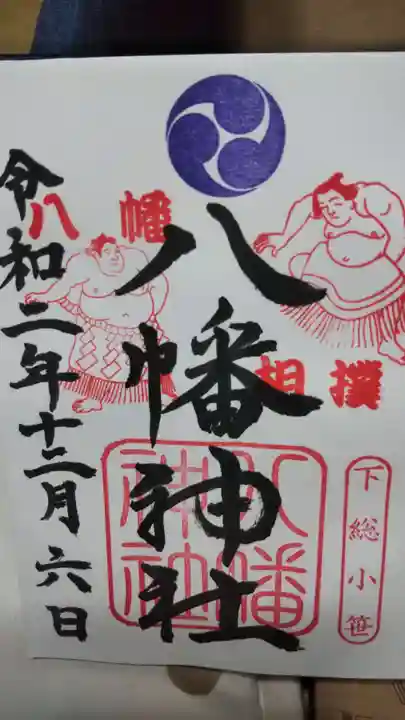 八幡
相撲
八幡神社
八幡
神社
下総小笹
令和二年十二月六日